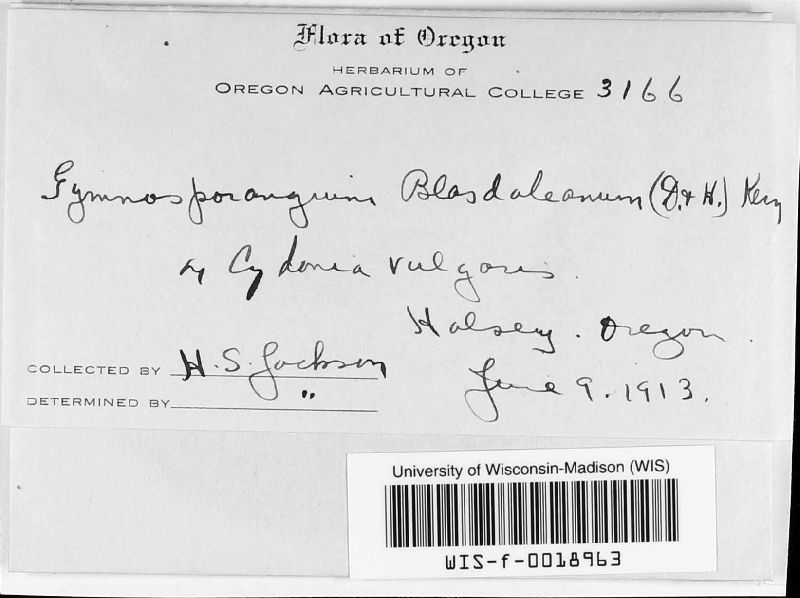 Flora of Oregon
HERBARIUM OF
OREGON AGRICULTURAL COLLEGE 3166
Gymnosporangium Blasdaleanum (D. & H.) Kern
on Cydonia vulgaris.
Halsey. Oregon.
COLLECTED BY H. S. Jackson
June 9. 1913.
DETERMINED BY "
University of Wisconsin-Madison (WIS)
WIS-f-0018963